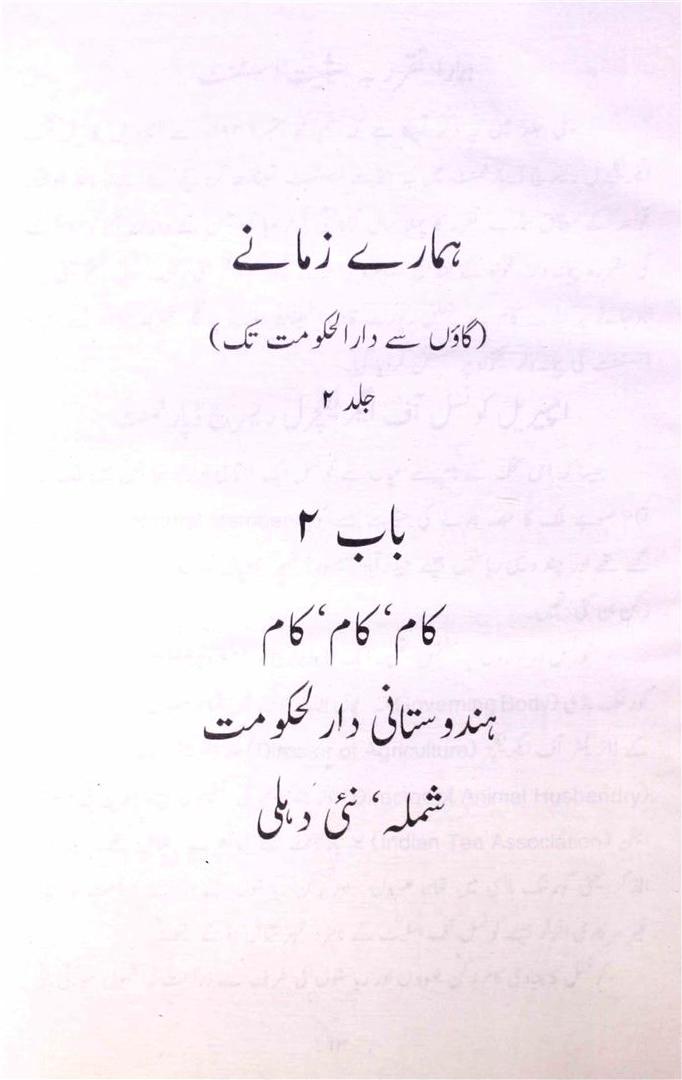 ہمارے زمانے
(گاؤں سے دارالحکومت تک)
جلد ۲
باب ۲
کام، کام، کام
ہندوستانی دارالحکومت
شملہ، نئی دہلی